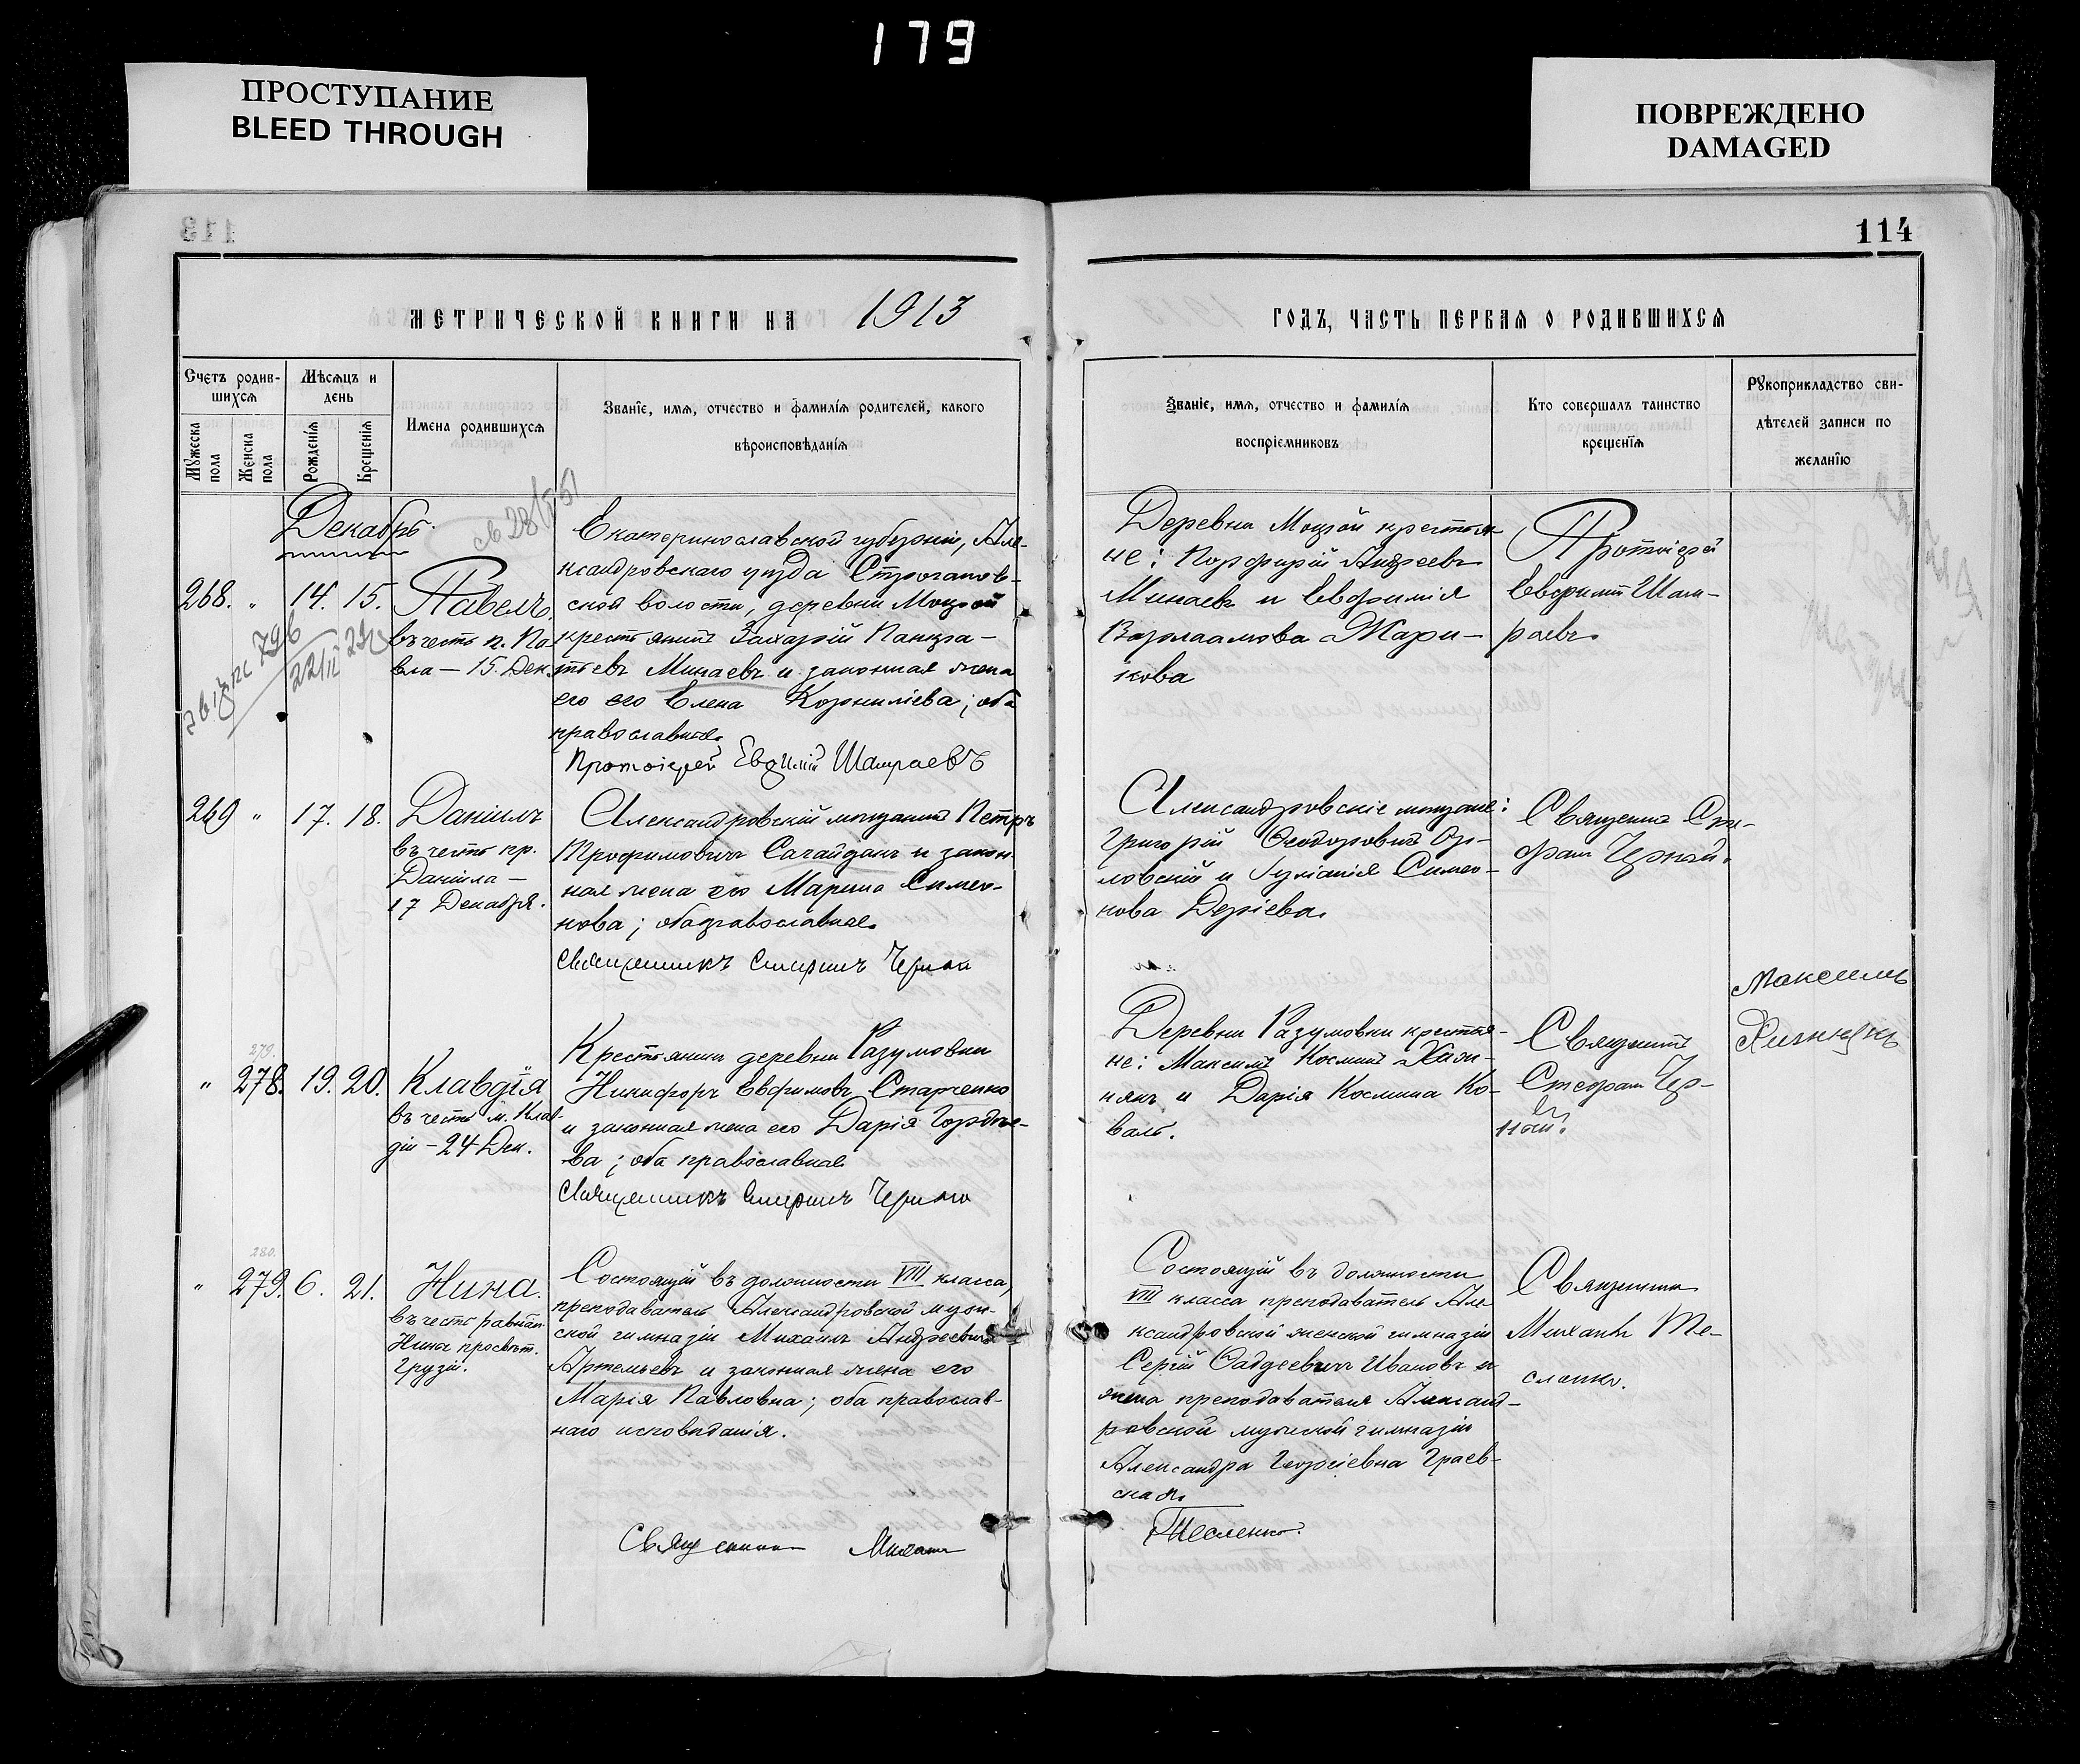 179
ПРОСТУПАНИЕ
BLEED THROUGH
ПОВРЕЖДЕНО
DAMAGED
113
114
МЕТРИЧЕСКОЙ КНИГИ НА 1913
ГОДЪ, ЧАСТЬ ПЕРВАЯ О РОДИВШИХСЯ
Счетъ родив-
шихся
Мѣсяцъ и
день
Мужеска
пола
Женска
пола
Рожденія
Крещенія
Имена родившихся
Званіе, имя, отчество и фамилія родителей, какого
вѣроисповѣданія
Званіе, имя, отчество и фамилія
воспріемниковъ
Кто совершалъ таинство
крещенія
Рукоприкладство сви-
дѣтелей записи по
желанію
Декабрь.
268. " 14. 15.
Павелъ
въ честь п. Па-
вла — 15. Дек.
Екатеринославской губерніи, Але-
ксандровскаго уѣзда Строганов-
ской волости, деревни Мокрой
крестьянинъ Захарій Панкра-
тьевъ Минаевъ и законная жена
его его Елена Корниліева; оба
православные.
Протоіерей Евфимій Шамраевъ
Деревни Мокрой крестья-
не: Порфирій Андреевъ
Минаевъ и Евфимія
Варлаамова Жари-
кова
Протоіерей
Евфимій Шам-
раевъ
269 " 17. 18.
Даніилъ
въ честь пр.
Даніила —
17 Декабря.
Александровскій мѣщанинъ Петръ
Трофимовичъ Сагайдакъ и закон-
ная жена его Марина Симео-
нова; оба православные.
Священникъ Стефанъ Черный
Александровскіе мѣщане:
Григорій Ѳеодоровичъ Ор-
ловскій и Іуліанія Симео-
нова Деріева.
Священникъ Сте-
фанъ Черный.
279.
" 278. 19. 20.
Клавдія
въ честь м. Клав-
діи — 24 Дек.
Крестьянинъ деревни Разумовки
Никифоръ Евфимовъ Старченко
и законная жена его Дарія Гордѣе-
ва; оба православные
Священникъ Стефанъ Черный
Деревни Разумовки крестья-
не: Максимъ Косминъ Хиж-
някъ и Дарія Космина Ко-
валь.
Священникъ
Стефанъ Чер-
ный.
Максимъ
Хижнякъ
280.
" 279. 6. 21.
Нина.
въ честь равноап.
Нины просвѣт.
Грузіи.
Состоящій въ должности VIII класса,
преподаватель Александровской муж-
ской гимназіи Михаилъ Андреевичъ
Артемьевъ и законная жена его
Марія Павловна; оба православ-
наго исповѣданія.
Состоящій въ должности
VIII класса преподаватель Але-
ксандровской женской гимназіи
Сергій Ѳаддеевичъ Ивановъ и
жена преподавателя Александ-
ровской мужской гимназіи
Александра Георгіевна Граев-
ская.
Священникъ
Михаилъ Те-
сленко.
Священникъ Михаилъ
Тесленко.